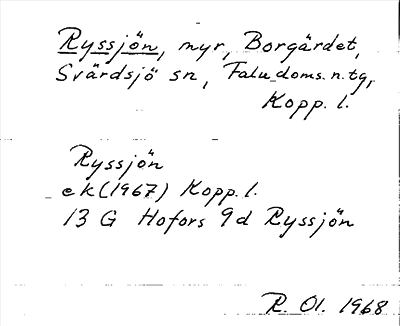 Ryssjön, myr, Borgärdet,
Svärdsjö sn, Falu doms. n. tg,
Kopp. l.
Ryssjön
ek (1967) Kopp. l.
13 G Hofors 9d Ryssjön
R. Ol. 1968